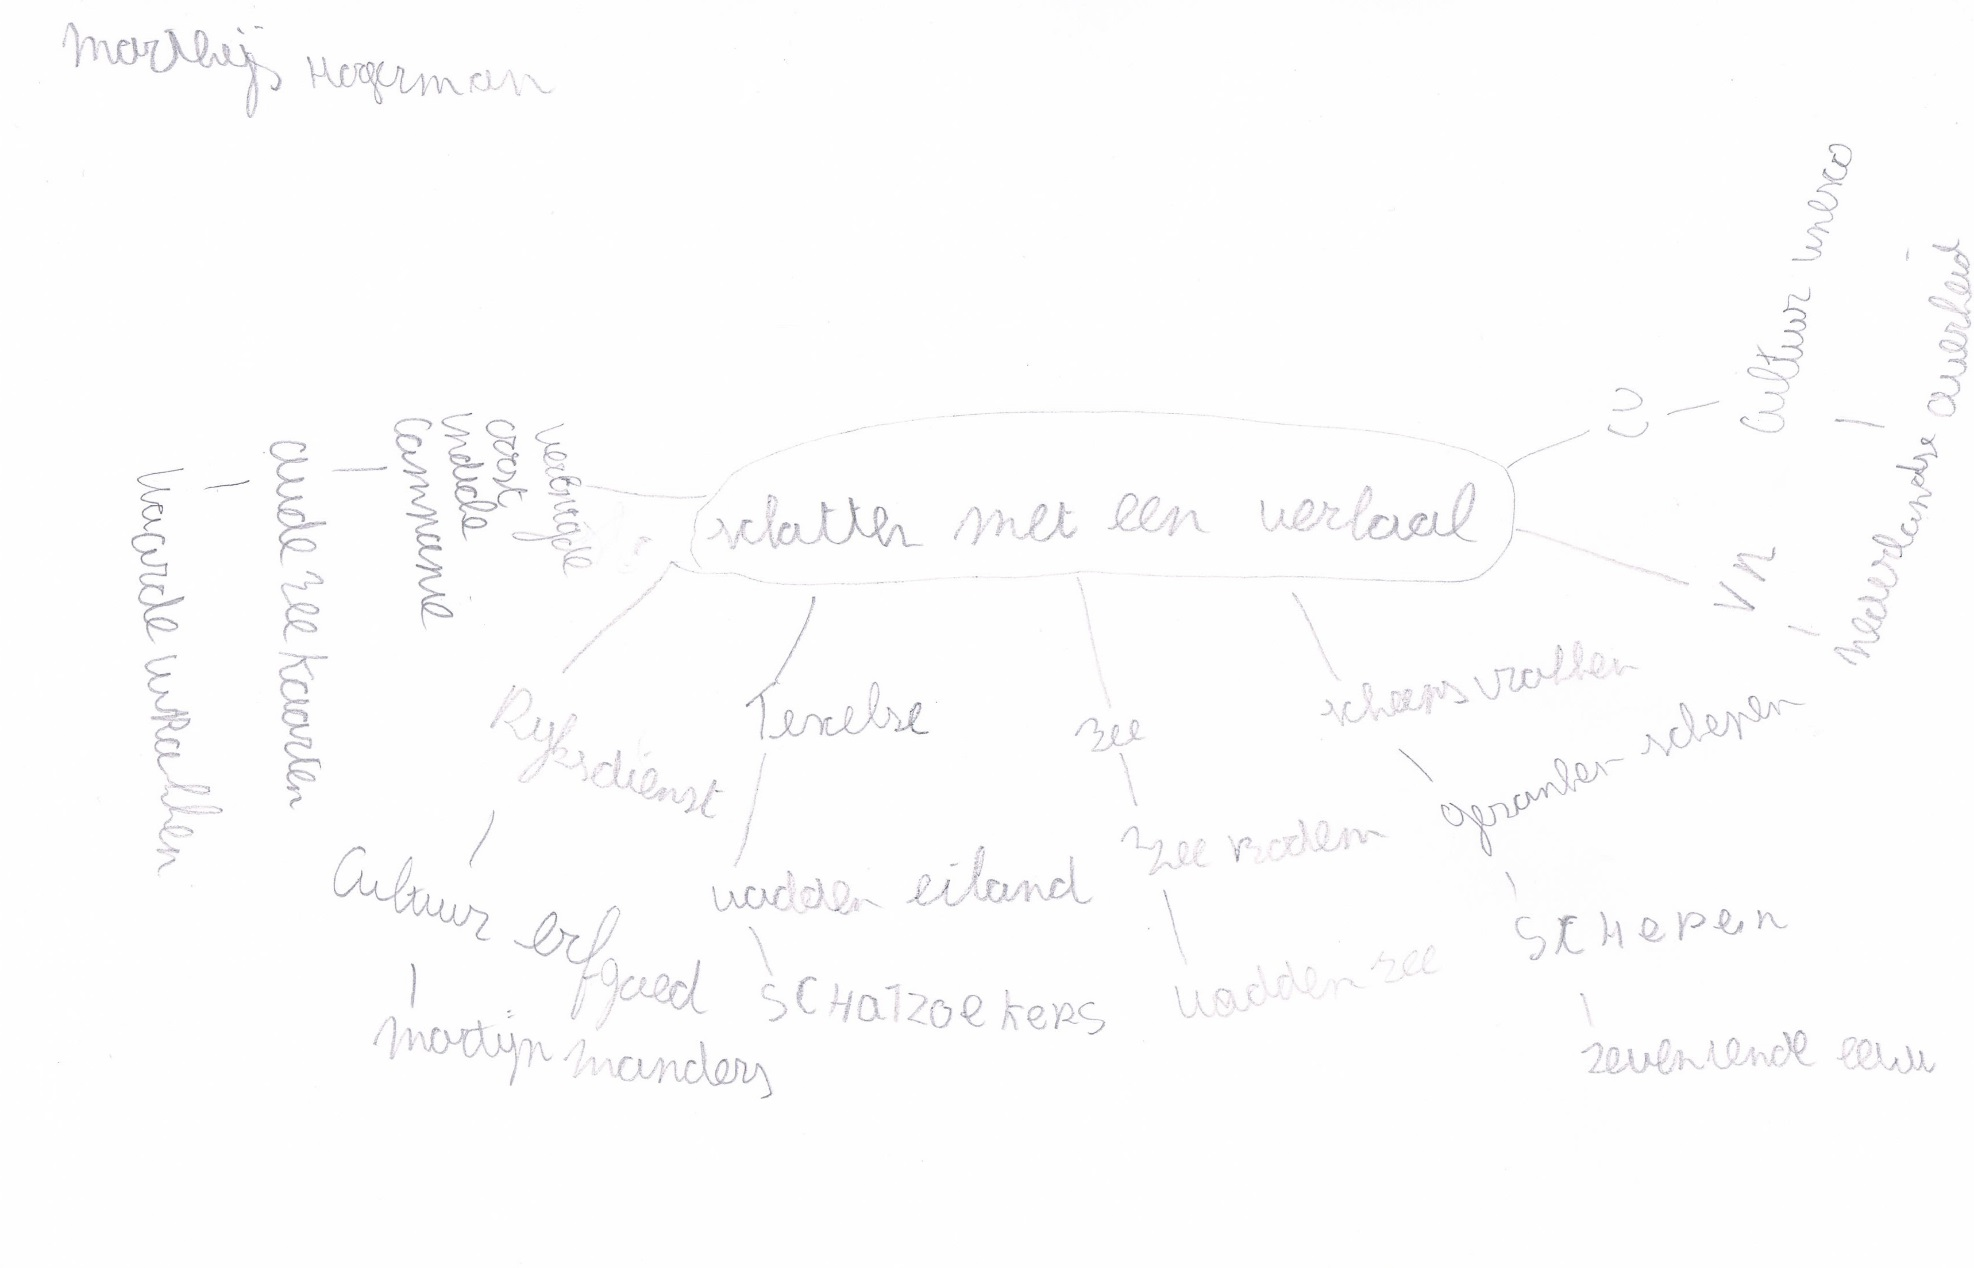 Marthijs Hogerman
schatten met een verhaal
verenigde
oost
indiche
Compnanie
oude zee kaarten
waarde wrakken
Rijksdienst
Cultuur erfgoed
Martijn Manders
Texelse
wadden eiland
SCHATZOEKERS
zee
zee Bodem
wadden zee
scheeps wrakken
gezonken schepen
SCHEPEN
zeventende eeuw
VN
CU
Cultuur unesco
nederlandse overheid